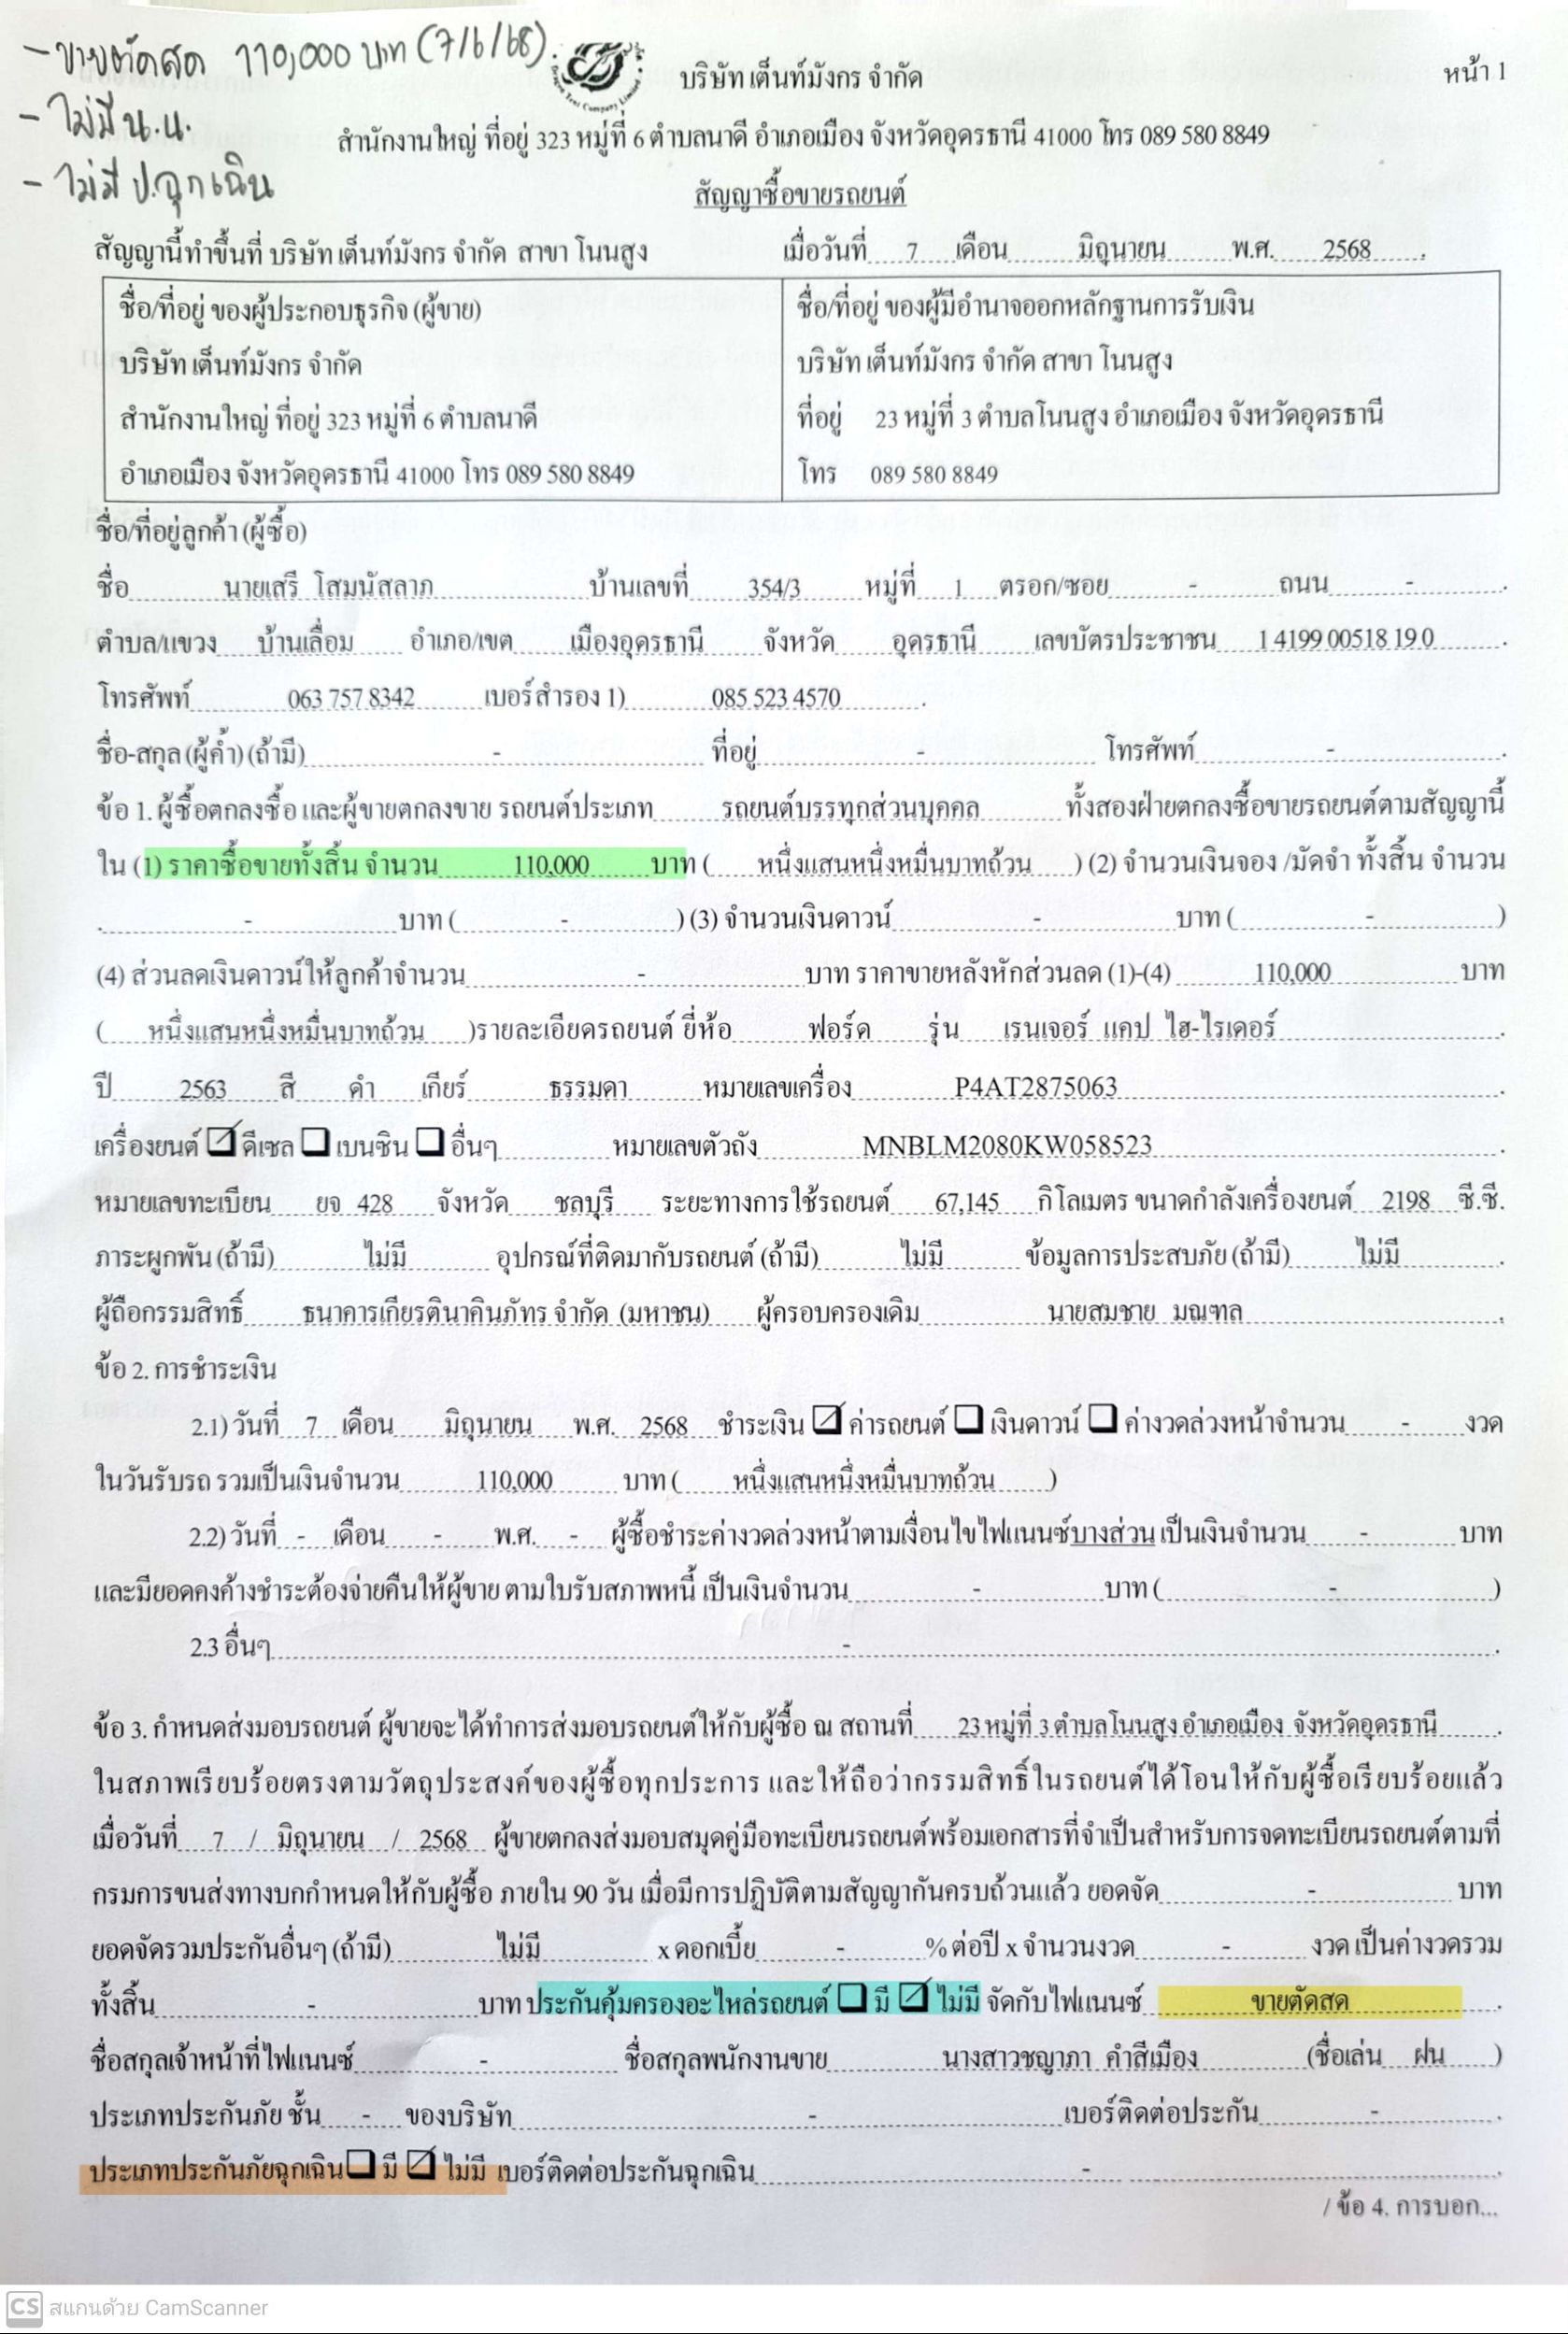 - ขายตัดสด 110,000 บาท (7/6/68)
- ไม่มี น.น.
- ไม่มี ป.ฉุกเฉิน
บริษัท เต็นท์มังกร จำกัด
หน้า 1
สำนักงานใหญ่ ที่อยู่ 323 หมู่ที่ 6 ตำบลนาดี อำเภอเมือง จังหวัดอุดรธานี 41000 โทร 089 580 8849
สัญญาซื้อขายรถยนต์
สัญญานี้ทำขึ้นที่ บริษัท เต็นท์มังกร จำกัด สาขา โนนสูง เมื่อวันที่ 7 เดือน มิถุนายน พ.ศ. 2568
ชื่อ/ที่อยู่ ของผู้ประกอบธุรกิจ (ผู้ขาย)
บริษัท เต็นท์มังกร จำกัด
สำนักงานใหญ่ ที่อยู่ 323 หมู่ที่ 6 ตำบลนาดี
อำเภอเมือง จังหวัดอุดรธานี 41000 โทร 089 580 8849
ชื่อ/ที่อยู่ ของผู้มีอำนาจออกหลักฐานการรับเงิน
บริษัท เต็นท์มังกร จำกัด สาขา โนนสูง
ที่อยู่ 23 หมู่ที่ 3 ตำบลโนนสูง อำเภอเมือง จังหวัดอุดรธานี
โทร 089 580 8849
ชื่อ/ที่อยู่ลูกค้า (ผู้ซื้อ)
ชื่อ นายเสรี โสมนัสลาภ บ้านเลขที่ 354/3 หมู่ที่ 1 ตรอก/ซอย - ถนน -
ตำบล/แขวง บ้านเลื่อม อำเภอ/เขต เมืองอุดรธานี จังหวัด อุดรธานี เลขบัตรประชาชน 1 4199 00518 19 0
โทรศัพท์ 063 757 8342 เบอร์สำรอง 1) 085 523 4570
ชื่อ-สกุล (ผู้ค้ำ) (ถ้ามี) - ที่อยู่ - โทรศัพท์ -
ข้อ 1. ผู้ซื้อตกลงซื้อ และผู้ขายตกลงขาย รถยนต์ประเภท รถยนต์บรรทุกส่วนบุคคล ทั้งสองฝ่ายตกลงซื้อขายรถยนต์ตามสัญญานี้
ใน (1) ราคาซื้อขายทั้งสิ้น จำนวน 110,000 บาท ( หนึ่งแสนหนึ่งหมื่นบาทถ้วน ) (2) จำนวนเงินจอง /มัดจำ ทั้งสิ้น จำนวน
- บาท ( - ) (3) จำนวนเงินดาวน์ - บาท ( - )
(4) ส่วนลดเงินดาวน์ให้ลูกค้าจำนวน - บาท ราคาขายหลังหักส่วนลด (1)-(4) 110,000 บาท
( หนึ่งแสนหนึ่งหมื่นบาทถ้วน )รายละเอียดรถยนต์ ยี่ห้อ ฟอร์ด รุ่น เรนเจอร์ แคป ไฮ-ไรเดอร์
ปี 2563 สี ดำ เกียร์ ธรรมดา หมายเลขเครื่อง P4AT2875063
เครื่องยนต์ ☑ ดีเซล ☐ เบนซิน ☐ อื่นๆ หมายเลขตัวถัง MNBLM2080KW058523
หมายเลขทะเบียน ยจ 428 จังหวัด ชลบุรี ระยะทางการใช้รถยนต์ 67,145 กิโลเมตร ขนาดกำลังเครื่องยนต์ 2198 ซี.ซี.
ภาระผูกพัน (ถ้ามี) ไม่มี อุปกรณ์ที่ติดมากับรถยนต์ (ถ้ามี) ไม่มี ข้อมูลการประสบภัย (ถ้ามี) ไม่มี
ผู้ถือกรรมสิทธิ์ ธนาคารเกียรตินาคินภัทร จำกัด (มหาชน) ผู้ครอบครองเดิม นายสมชาย มณฑล
ข้อ 2. การชำระเงิน
2.1) วันที่ 7 เดือน มิถุนายน พ.ศ. 2568 ชำระเงิน ☑ ค่ารถยนต์ ☐ เงินดาวน์ ☐ ค่างวดล่วงหน้าจำนวน - งวด
ในวันรับรถ รวมเป็นเงินจำนวน 110,000 บาท ( หนึ่งแสนหนึ่งหมื่นบาทถ้วน )
2.2) วันที่ - เดือน - พ.ศ. - ผู้ซื้อชำระค่างวดล่วงหน้าตามเงื่อนไขไฟแนนซ์บางส่วน เป็นเงินจำนวน - บาท
และมียอดคงค้างชำระต้องจ่ายคืนให้ผู้ขาย ตามใบรับสภาพหนี้ เป็นเงินจำนวน - บาท ( - )
2.3 อื่นๆ -
ข้อ 3. กำหนดส่งมอบรถยนต์ ผู้ขายจะได้ทำการส่งมอบรถยนต์ให้กับผู้ซื้อ ณ สถานที่ 23 หมู่ที่ 3 ตำบลโนนสูง อำเภอเมือง จังหวัดอุดรธานี
ในสภาพเรียบร้อยตรงตามวัตถุประสงค์ของผู้ซื้อทุกประการ และให้ถือว่ากรรมสิทธิ์ในรถยนต์ได้โอนให้กับผู้ซื้อเรียบร้อยแล้ว
เมื่อวันที่ 7 / มิถุนายน / 2568 ผู้ขายตกลงส่งมอบสมุดคู่มือทะเบียนรถยนต์พร้อมเอกสารที่จำเป็นสำหรับการจดทะเบียนรถยนต์ตามที่
กรมการขนส่งทางบกกำหนดให้กับผู้ซื้อ ภายใน 90 วัน เมื่อมีการปฏิบัติตามสัญญากันครบถ้วนแล้ว ยอดจัด - บาท
ยอดจัดรวมประกันอื่นๆ (ถ้ามี) ไม่มี x ดอกเบี้ย - % ต่อปี x จำนวนงวด - งวด เป็นค่างวดรวม
ทั้งสิ้น - บาท ประกันคุ้มครองอะไหล่รถยนต์ ☐ มี ☑ ไม่มี จัดกับไฟแนนซ์ ขายตัดสด
ชื่อสกุลเจ้าหน้าที่ไฟแนนซ์ - ชื่อสกุลพนักงานขาย นางสาวชญาภา คำสีเมือง (ชื่อเล่น ฝน )
ประเภทประกันภัย ชั้น - ของบริษัท - เบอร์ติดต่อประกัน -
ประเภทประกันภัยฉุกเฉิน ☐ มี ☑ ไม่มี เบอร์ติดต่อประกันฉุกเฉิน -
/ ข้อ 4. การบอก...
CS สแกนด้วย CamScanner